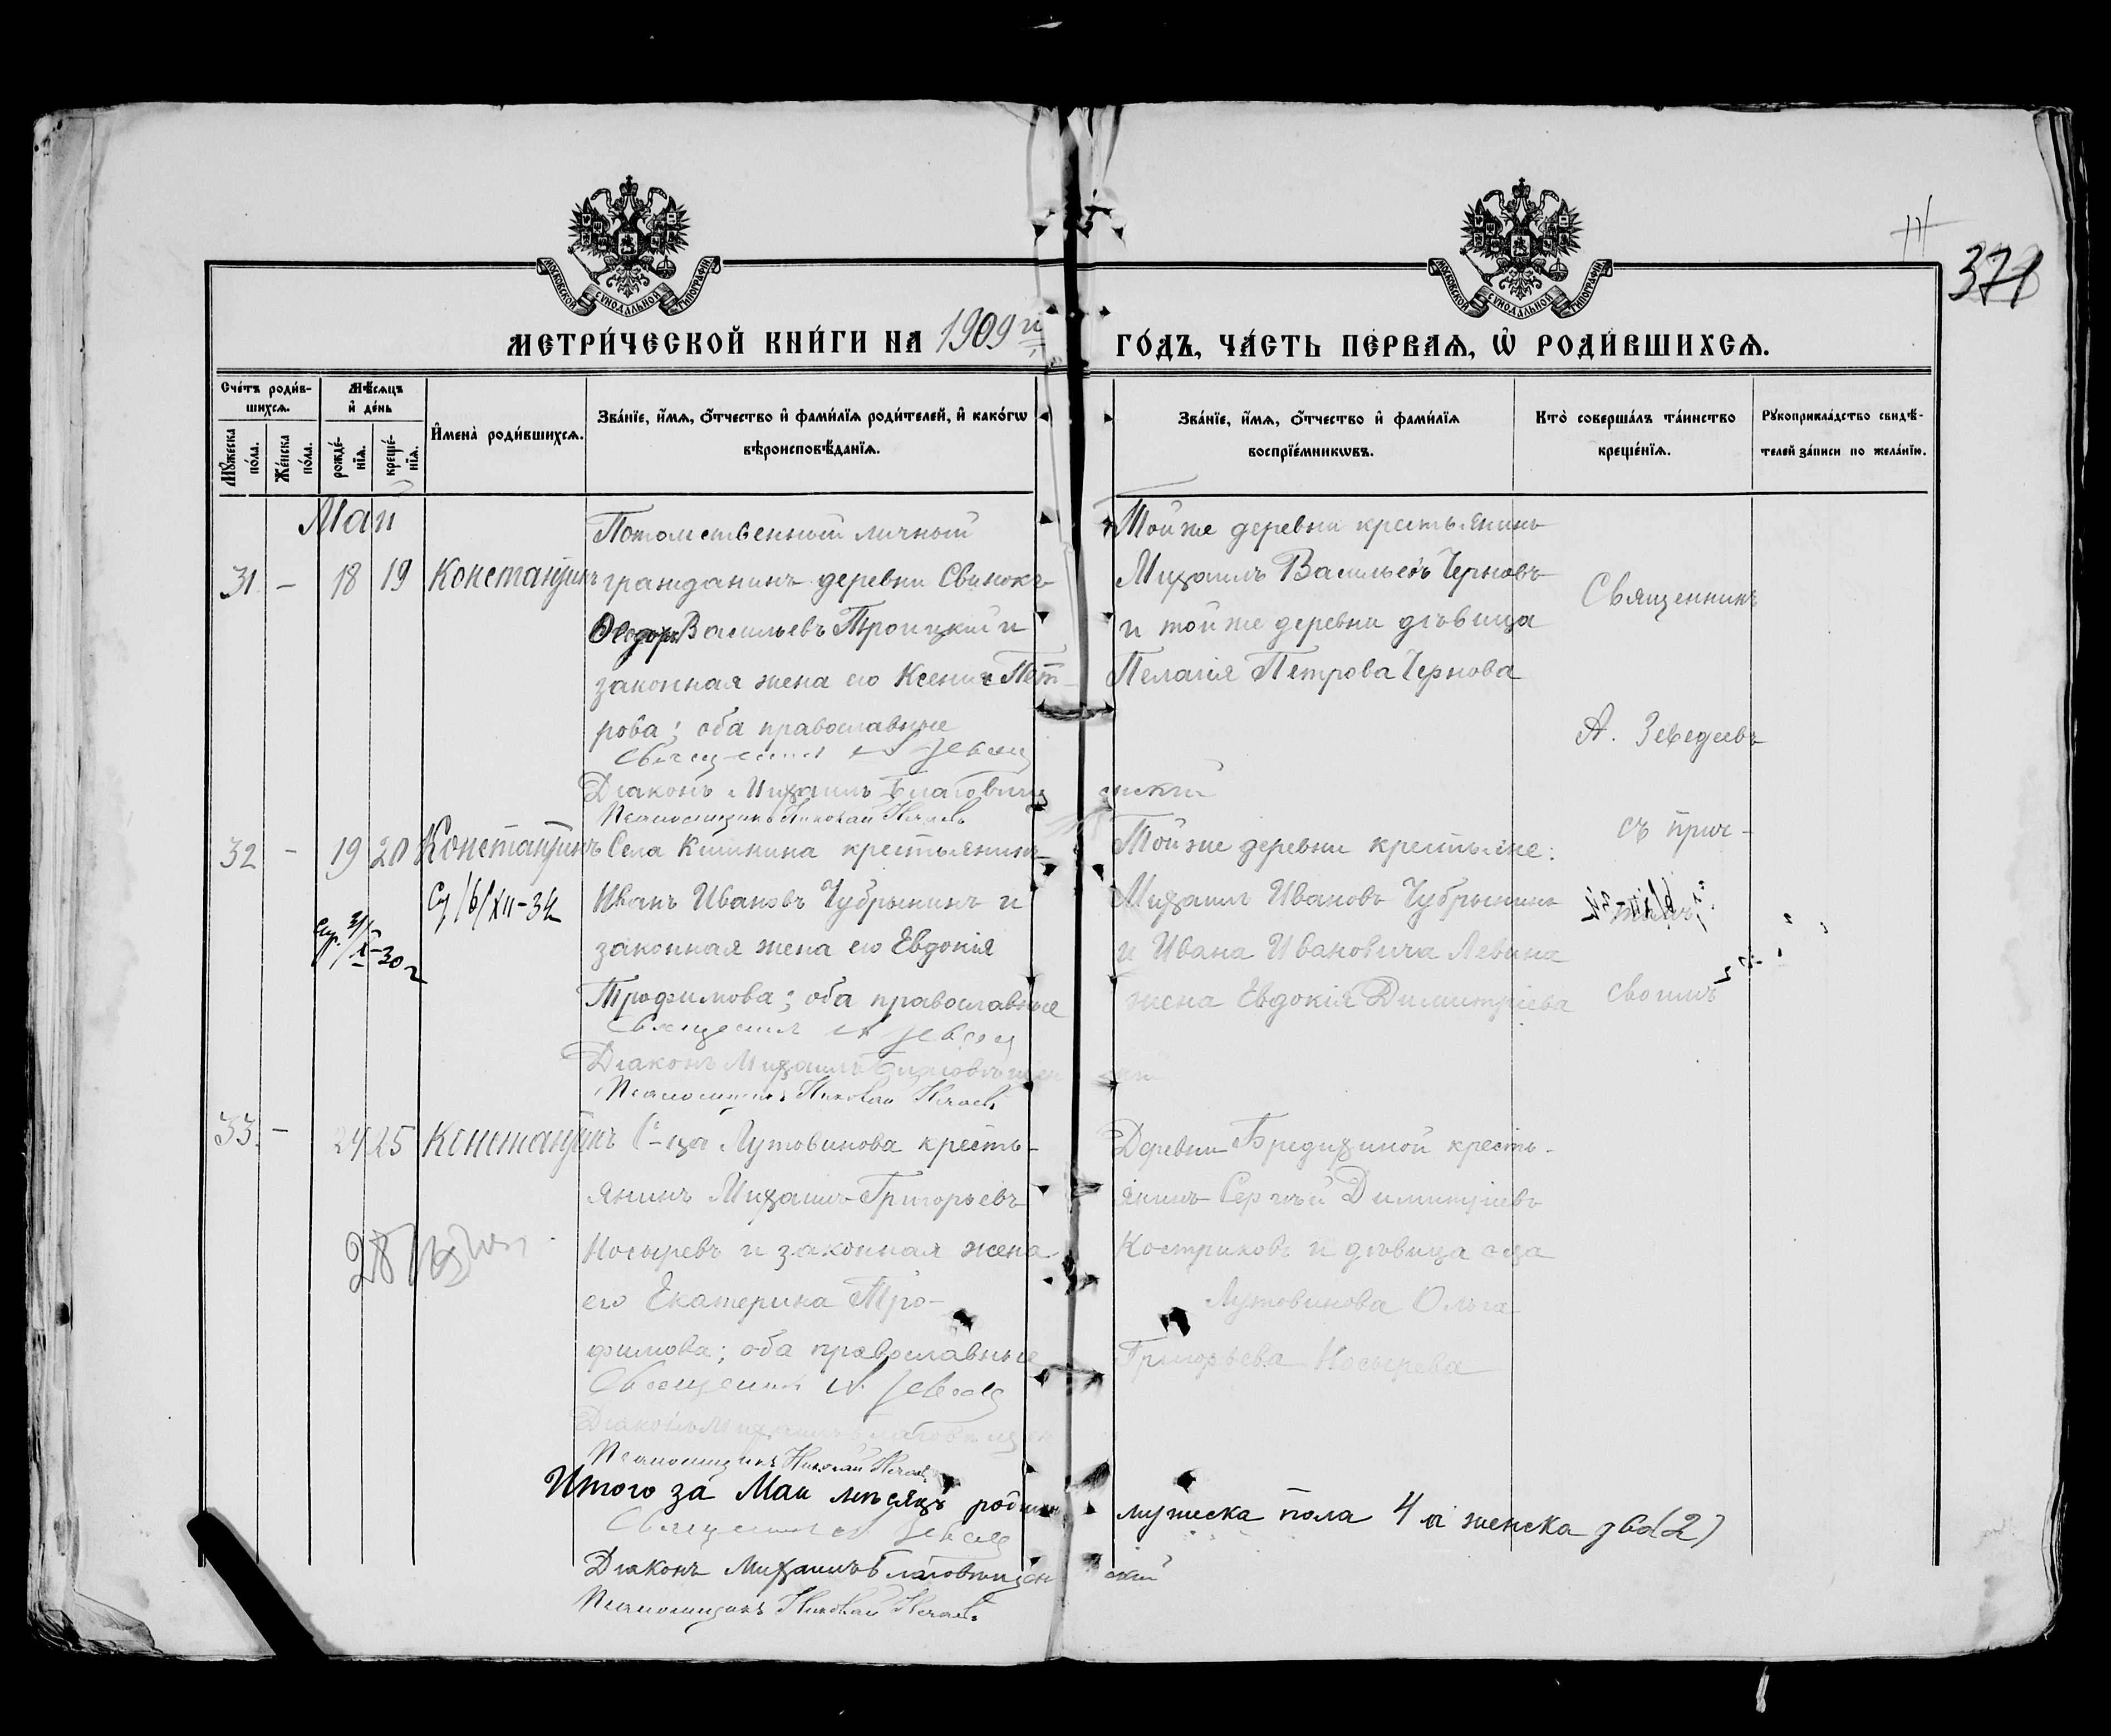 371
МОСКОВСКОЙ СѴНОДАЛЬНОЙ ТИПОГРАФІИ
МОСКОВСКОЙ СѴНОДАЛЬНОЙ ТИПОГРАФІИ
МЕТРИ́ЧЕСКОЙ КНИ́ГИ НА 1909 й
ГО́ДЪ, ЧА́СТЬ ПЕ́РВАѦ, Ѡ҆ РОДИ́ВШИХСѦ.
Сче́тъ роди́в-
шихсѧ.
Мꙋ́жеска по́ла.
Же́нска по́ла.
Мѣ́сѧцъ
и҆ де́нь
рожде́-
нїѧ.
креще́-
нїѧ.
И҆мена̀ роди́вшихсѧ.
Зва́нїе, и҆́мѧ, ѻ҆́тчество и҆ фами́лїѧ роди́телей, и҆ како́гѡ
вѣроисповѣ́данїѧ.
Зва́нїе, и҆́мѧ, ѻ҆́тчество и҆ фами́лїѧ
воспрїе́мникѡвъ.
Кто̀ соверша́лъ та́инство
креще́нїѧ.
Рꙋкоприкла́дство свидѣ́-
телей за́писи по жела́нїю.
Май
31. - 18 19 Константинъ
Потомственный личный
гражданинъ деревни Свинокъ
Ѳеодоръ Васильевъ Троицкій и
законная жена его Ксенія Пет-
рова; оба православные
Діаконъ Михаилъ Благовѣщенскій
Псаломщикъ Николай
Той же деревни крестьянинъ
Михаилъ Васильевъ Черновъ
и той же деревни дѣвица
Пелагія Петрова Чернова
Священникъ
А. Зеведеевъ
съ прич-
томъ
своимъ
32 - 19 20 Константинъ
XII-34
X-30 г
Села крестьянинъ
Иванъ Ивановъ Чубрынинъ и
законная жена его Евдокія
Трофимова; оба православные
Діаконъ Михаилъ Благовѣщенскій
Псаломщикъ Николай
Той же деревни крестьяне:
Михаилъ Ивановъ Чубрынинъ
и Ивана Ивановича Левина
жена Евдокія Димитріева
33. - 24 25 Константинъ
28
С-ца Лутовинова кресть-
янинъ Михаилъ Григорьевъ
Носыревъ и законная жена
его Екатерина Тро-
фимова; оба православные
Діаконъ Михаилъ Благовѣщен
Псаломщикъ Николай
Деревни Бредихиной кресть-
янинъ Сергѣй Димитріевъ
Костриковъ и дѣвица с-ца
Лутовинова Ольга
Григорьева Носырева
Итого за Май мѣсяцъ
мужеска пола 4 и женска два (2)
Діаконъ Михаилъ Благовѣщенскій
Псаломщикъ Николай